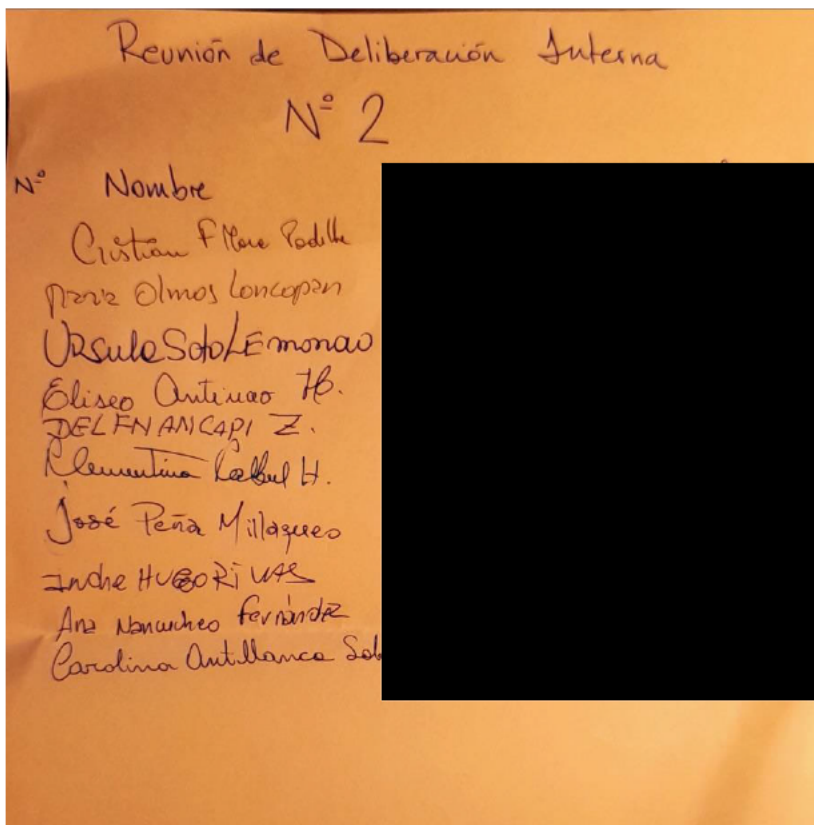 Reunión de Deliberación Interna
Nº 2
Nº Nombre
Cristian F Padilla
Olmos Loncopan
Ursula Soto LEmonao
Eliseo Antinao H.
DELFN ANCAPI Z.
Clementina H.
José Peña Millaqueo
HUGO RiVAS
Ana Fernández
Carolina Antillanca